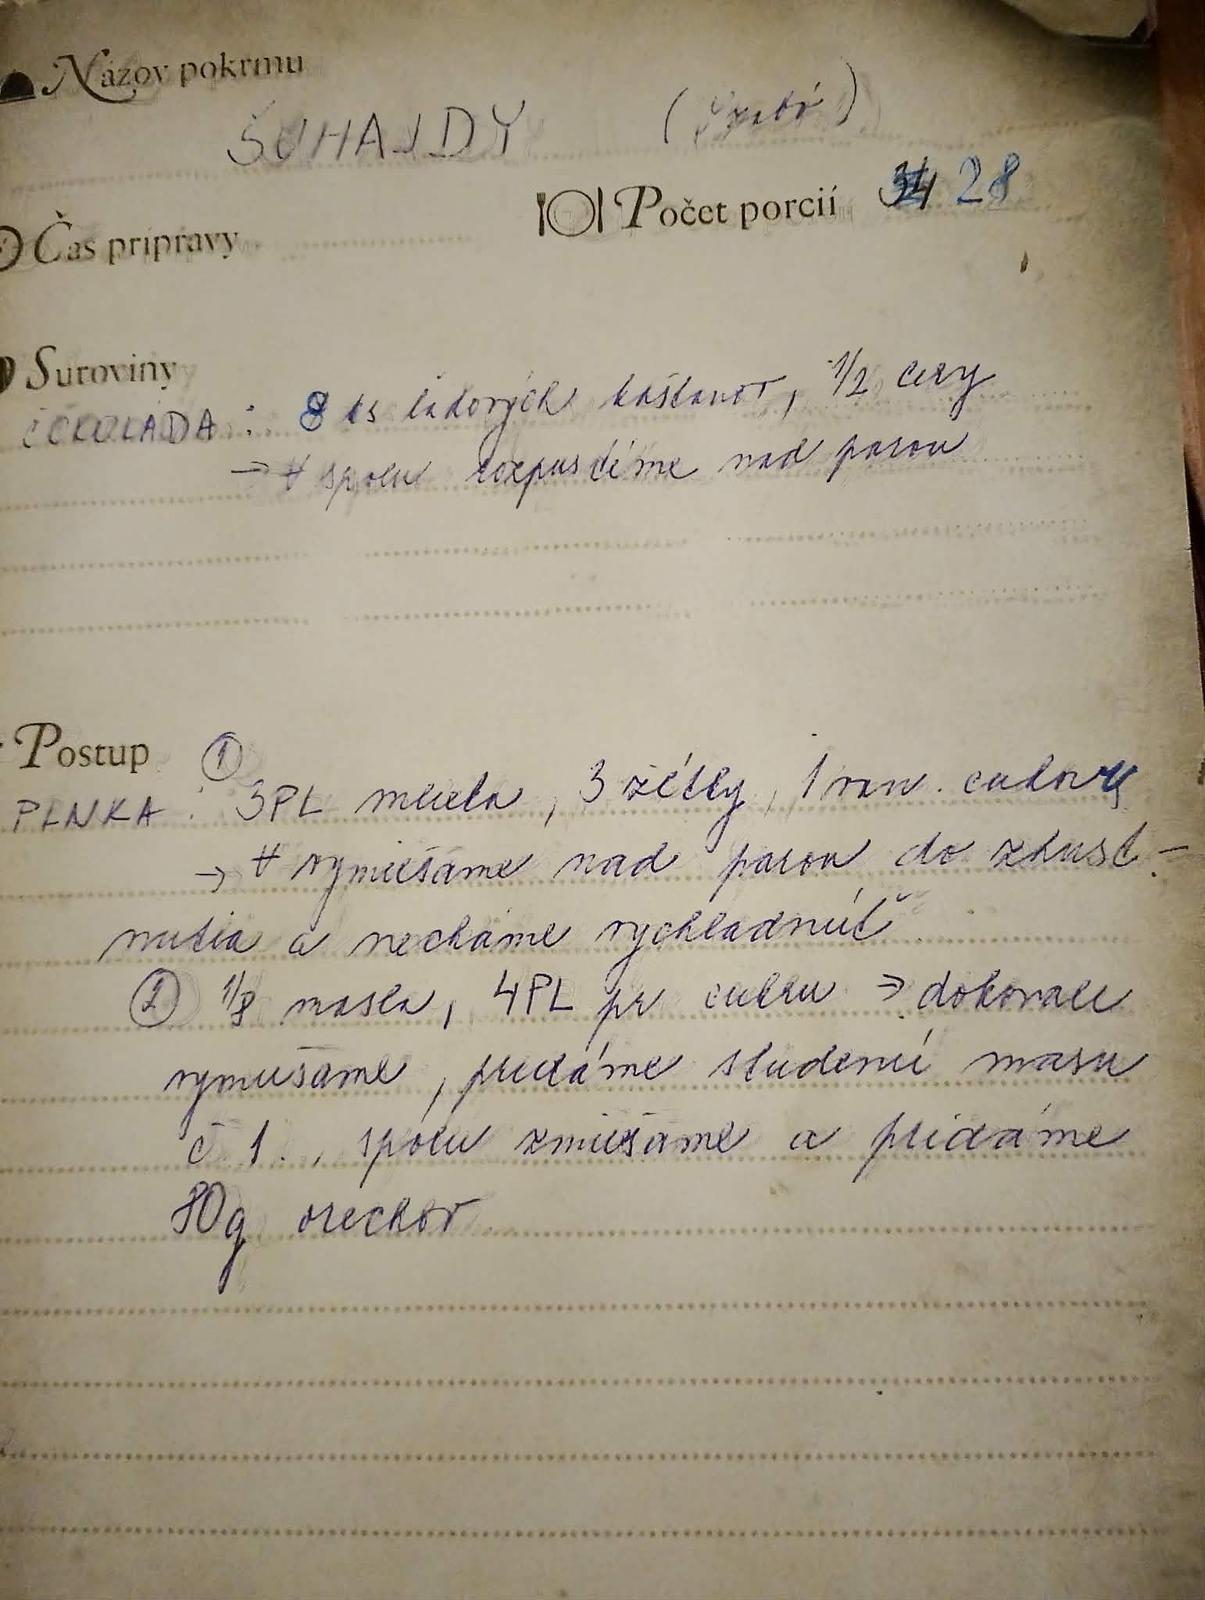 Názov pokrmu
ŠUHAJDY
Počet porcií 28
Čas prípravy
Suroviny
ČOKOLÁDA : 8 ks ľadových kaštanov, 1/2 cery
→ # spolu rozpustíme nad parou
Postup ①
PLNKA : 3PL mlieka, 3 žĺtky, 1 van. cukor
→ # vymiešame nad parou do zhust-
nutia a necháme vychladnúť
② 1/8 masla, 4PL pr cukru → dohovale
vymiešame, pridáme studenú masu
č 1., spolu zmiešame a pridáme
80g orechov